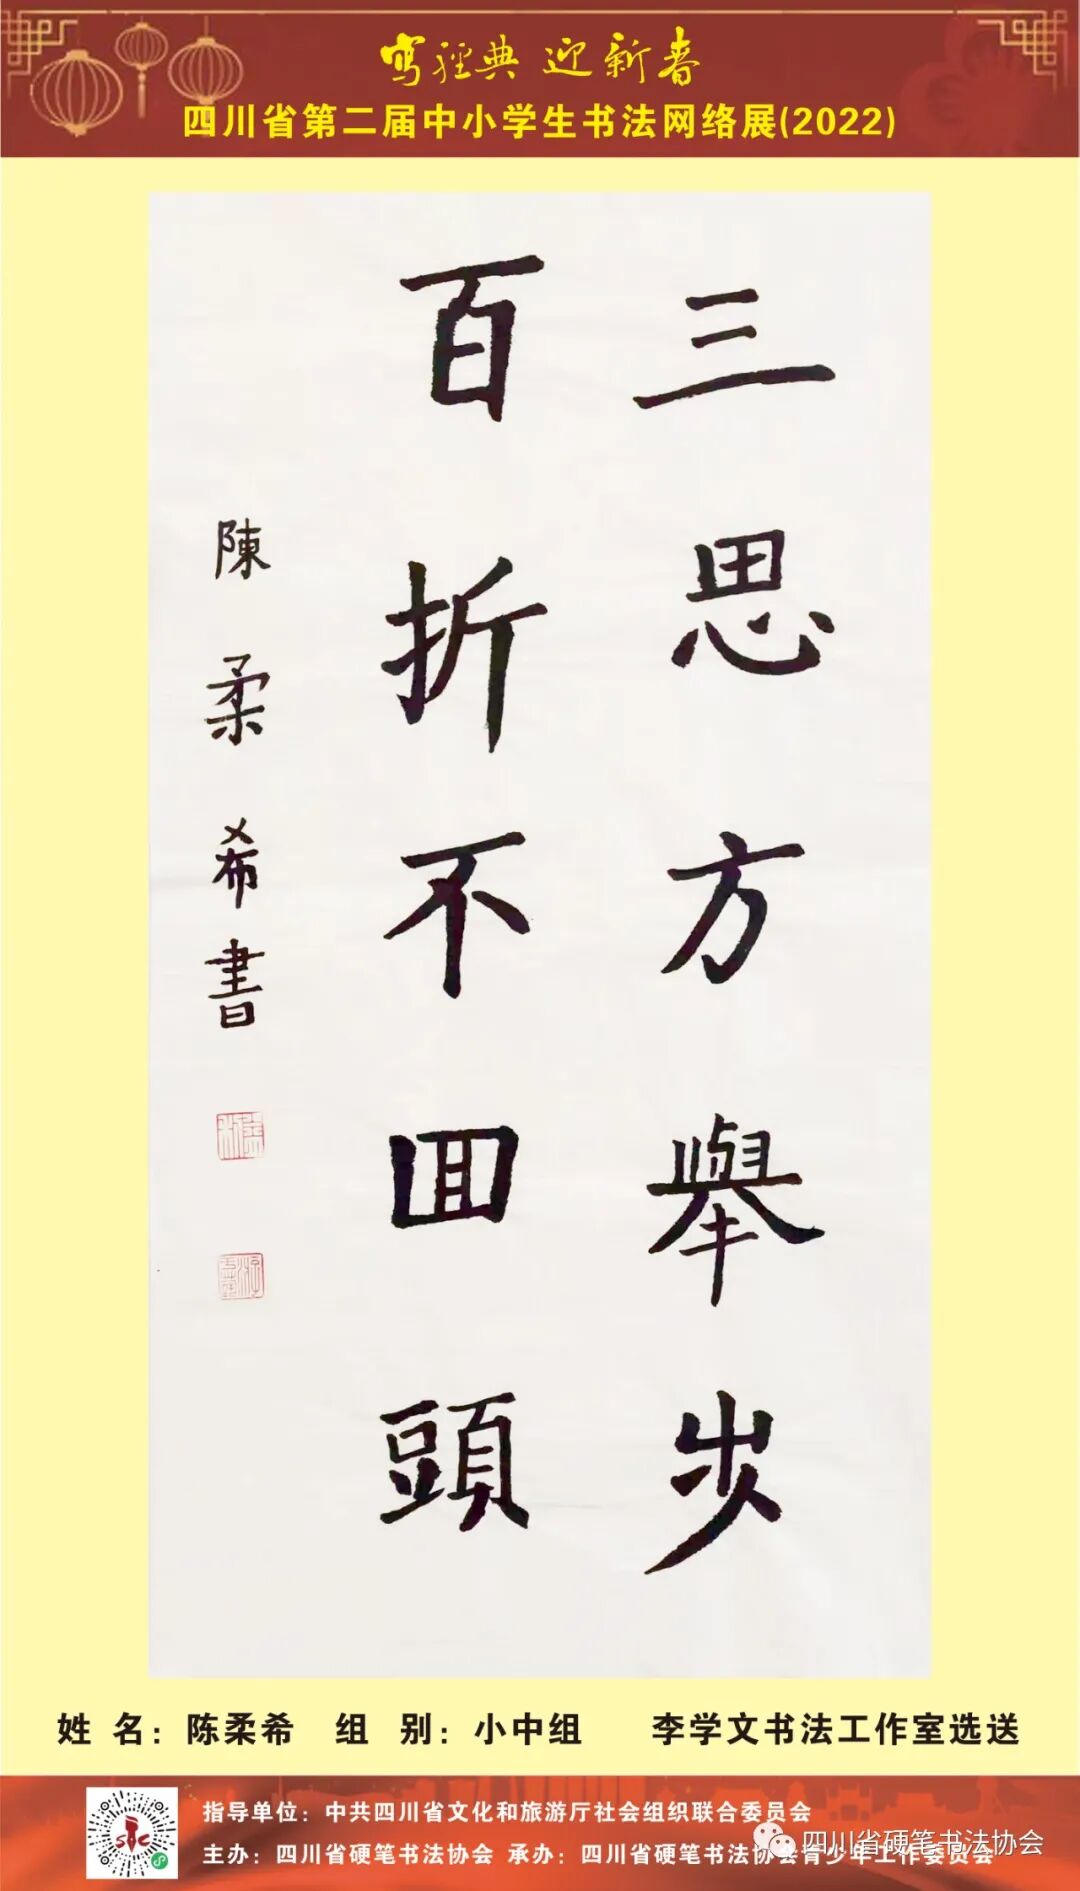 写经典 迎新春
四川省第二届中小学生书法网络展(2022)
三思方舉步
百折不回頭
陳柔希書
姓 名：陈柔希 组 别：小中组 李学文书法工作室选送
指导单位：中共四川省文化和旅游厅社会组织联合委员会
主办：四川省硬笔书法协会 承办：四川省硬笔书法协会青少年工作委员会
四川省硬笔书法协会